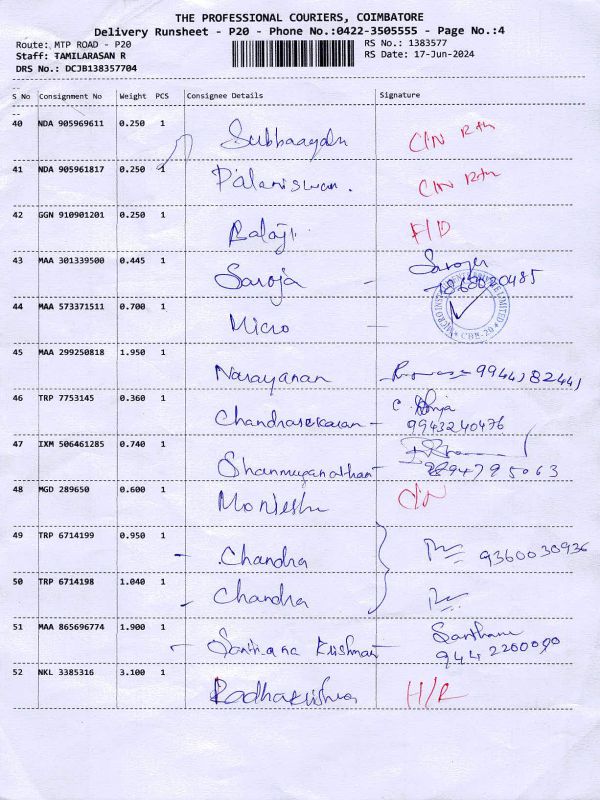 THE PROFESSIONAL COURIERS, COIMBATORE
Delivery Runsheet - P20 - Phone No.:0422-3505555 - Page No.:4
Route: MTP ROAD - P20
RS No.: 1383577
Staff: TAMILARASAN R
RS Date: 17-Jun-2024
DRS No.: DCJB138357704
S No Consignment No Weight PCS Consignee Details Signature
40 NDA 905969611 0.250 1
C/N Rtn
41 NDA 905961817 0.250 1 Palaniswan.
C/N Rtn
42 GGN 910901201 0.250 1 Balaji
F/D
43 MAA 301339500 0.445 1 Saroja - Saroja
44 MAA 573371511 0.700 1 Micro -
CBN-20
45 MAA 299250818 1.950 1 Narayanan
46 TRP 7753145 0.360 1 Chandrasekaran -
9943240476
47 IXM 506461285 0.740 1 Shanmuganathan
48 MGD 289650 0.600 1
C/N
49 TRP 6714199 0.950 1 - Chandra
9360030936
50 TRP 6714198 1.040 1 - Chandra
51 MAA 865696774 1.900 1 - Santhana Krishnan
52 NKL 3385316 3.100 1 Radhakrishna
H/R